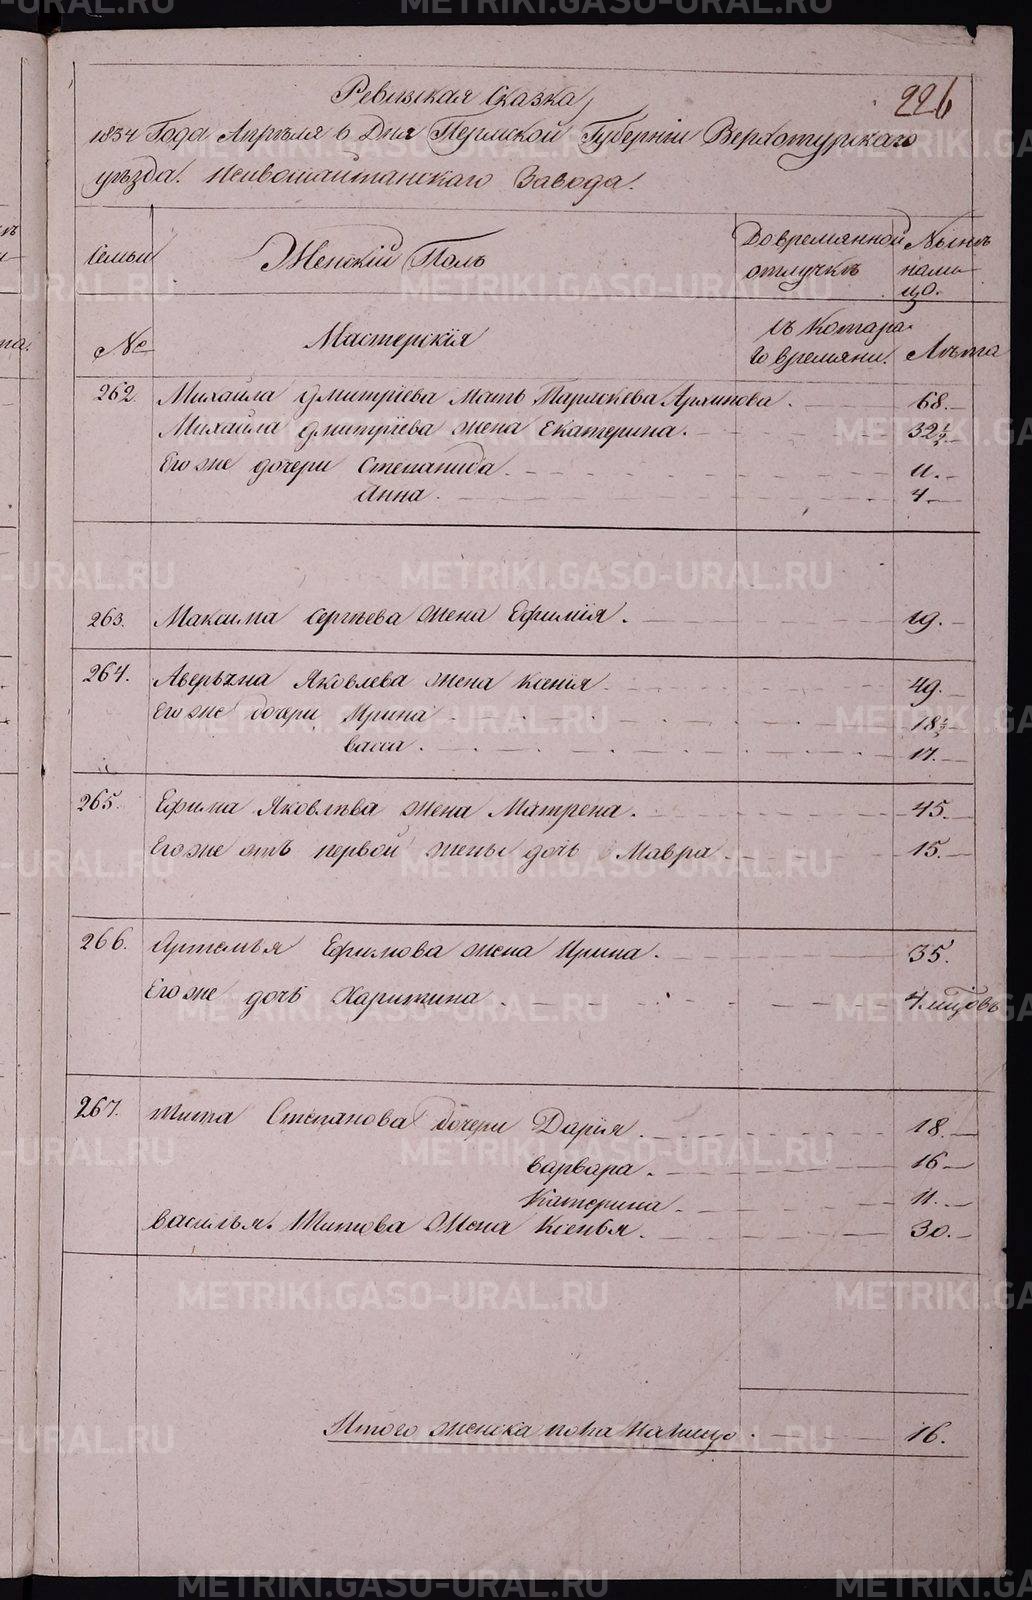 226
Ревизкая Сказка,
1834 Года Апреля 6 Дня Пермской Губернiи Верхотурскаго
уѣзда. Невошайтанскаго Завода.
Семьи Женскiй Полъ Во времянной отлучкѣ Нынѣ налицо.
№ Мастерскiя съ Котораго времяни. Лѣта
262. Михайла Дмитрiева Мать Парасковья Архипова. 68.
Михайла Дмитрiева жена Екатерина. 32½
Его же дочери Степанида. 11.
Анна. 4.
263. Максима Сергѣева жена Ефимiя. 19.
264. Аверьяна Яковлева жена Ксенiя. 49.
Его же дочери Ирина. 18½
васса. 17.
265. Ефима Яковлѣва жена Матрена. 45.
Его же отъ первой жены дочь Мавра. 15.
266. Артемья Ефимова жена Ирина. 35.
Его же дочь Харитина. 4. мцовъ
267. Тита Степанова дочери Дарiя. 18.
варвара. 16
Катерина. 11.
василья Титова Жена Ксенья. 30.
Итого женска пола налицо. 16.
METRIKI.GASO-URAL.RU